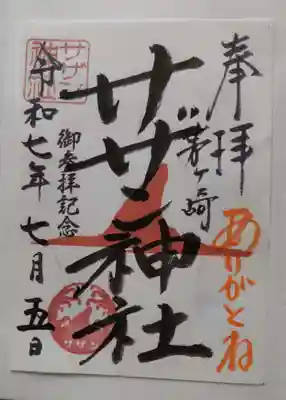 奉拝
茅ヶ崎
ありがとね
サザン神社
御参拝記念
令和七年七月五日
サザン
神社
サザン